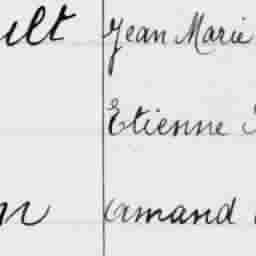 ult Jean Marie
Etienne
n Amand